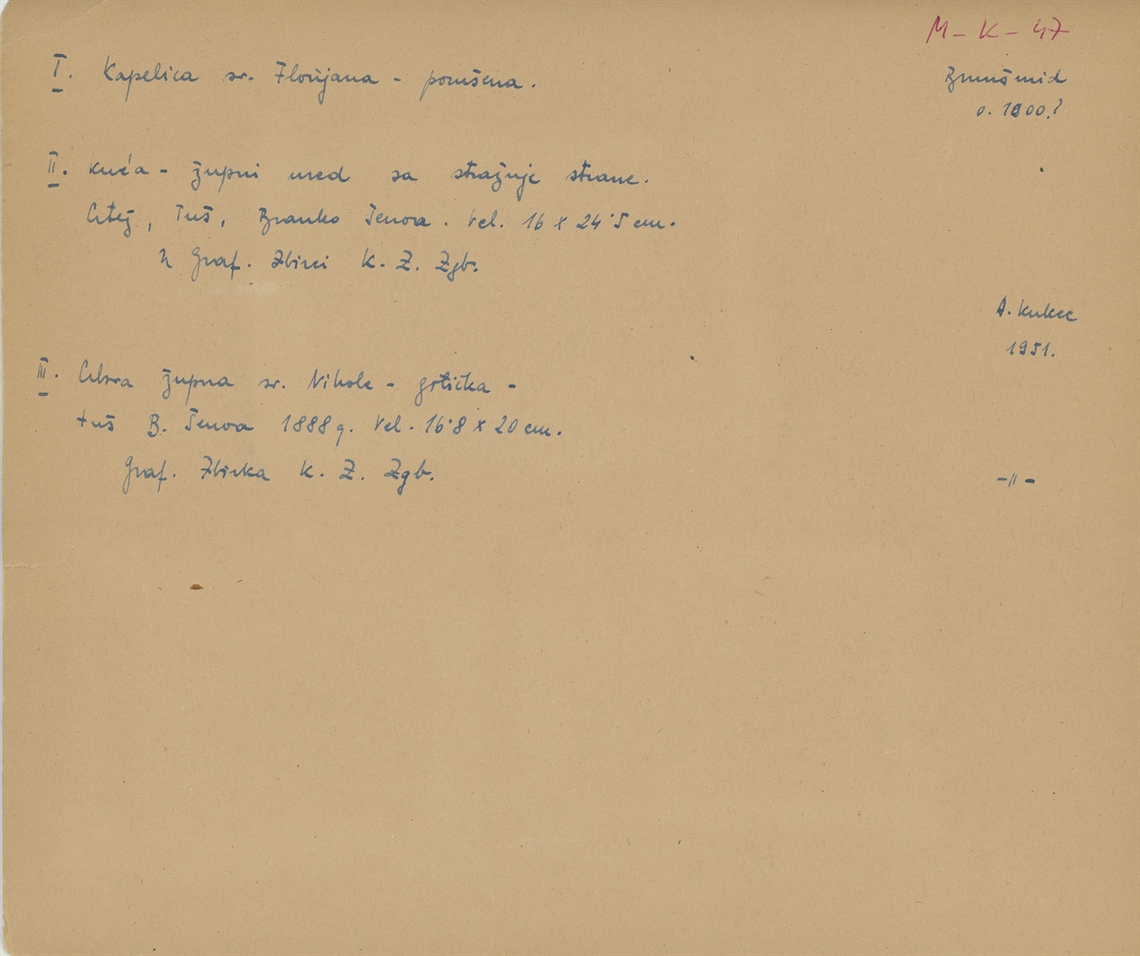 M-K-47
I. Kapelica sv. Florijana - porušena.
o. 1900?
II. Kuća - župni ured sa stražnje strane.
Crtež, Tuš, Branko Šenoa. Vel. 16 x 24'5 cm.
U Graf. Zbirci K. Z. Zgb.
A. Kukec
1951.
III. Crkva župna sv. Nikole - gotička -
tuš B. Šenoa 1888 g. Vel. 16'8 x 20 cm.
Graf. Zbirka K. Z. Zgb.
-II-